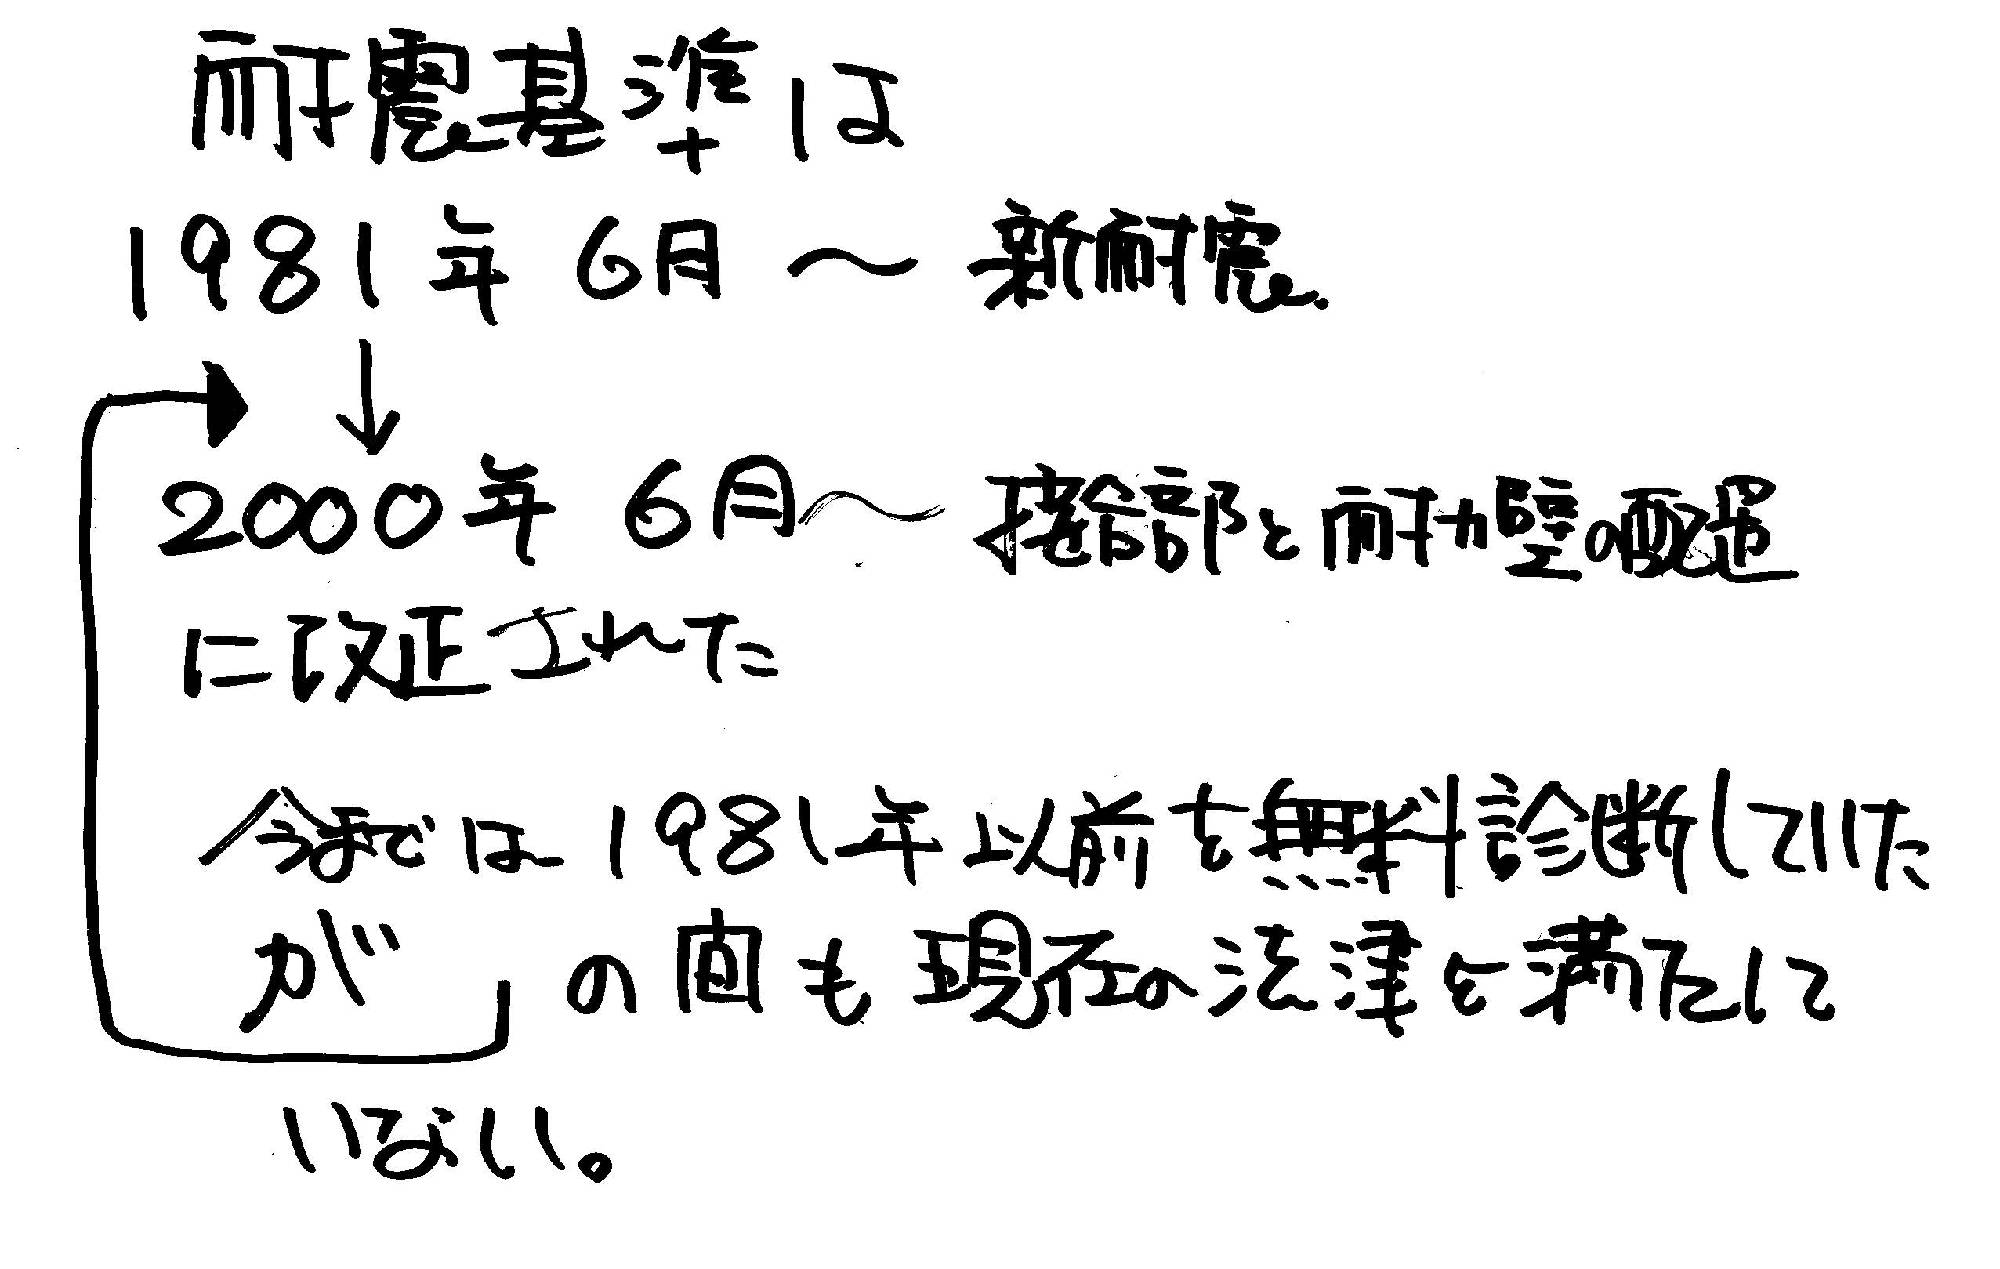 耐震基準は
1981年 6月 〜 新耐震
2000年 6月〜 接合部と耐力壁の配置
に改正された
今までは 1981年以前を無料診断していた
が の間も現在の法律を満たして
いない。